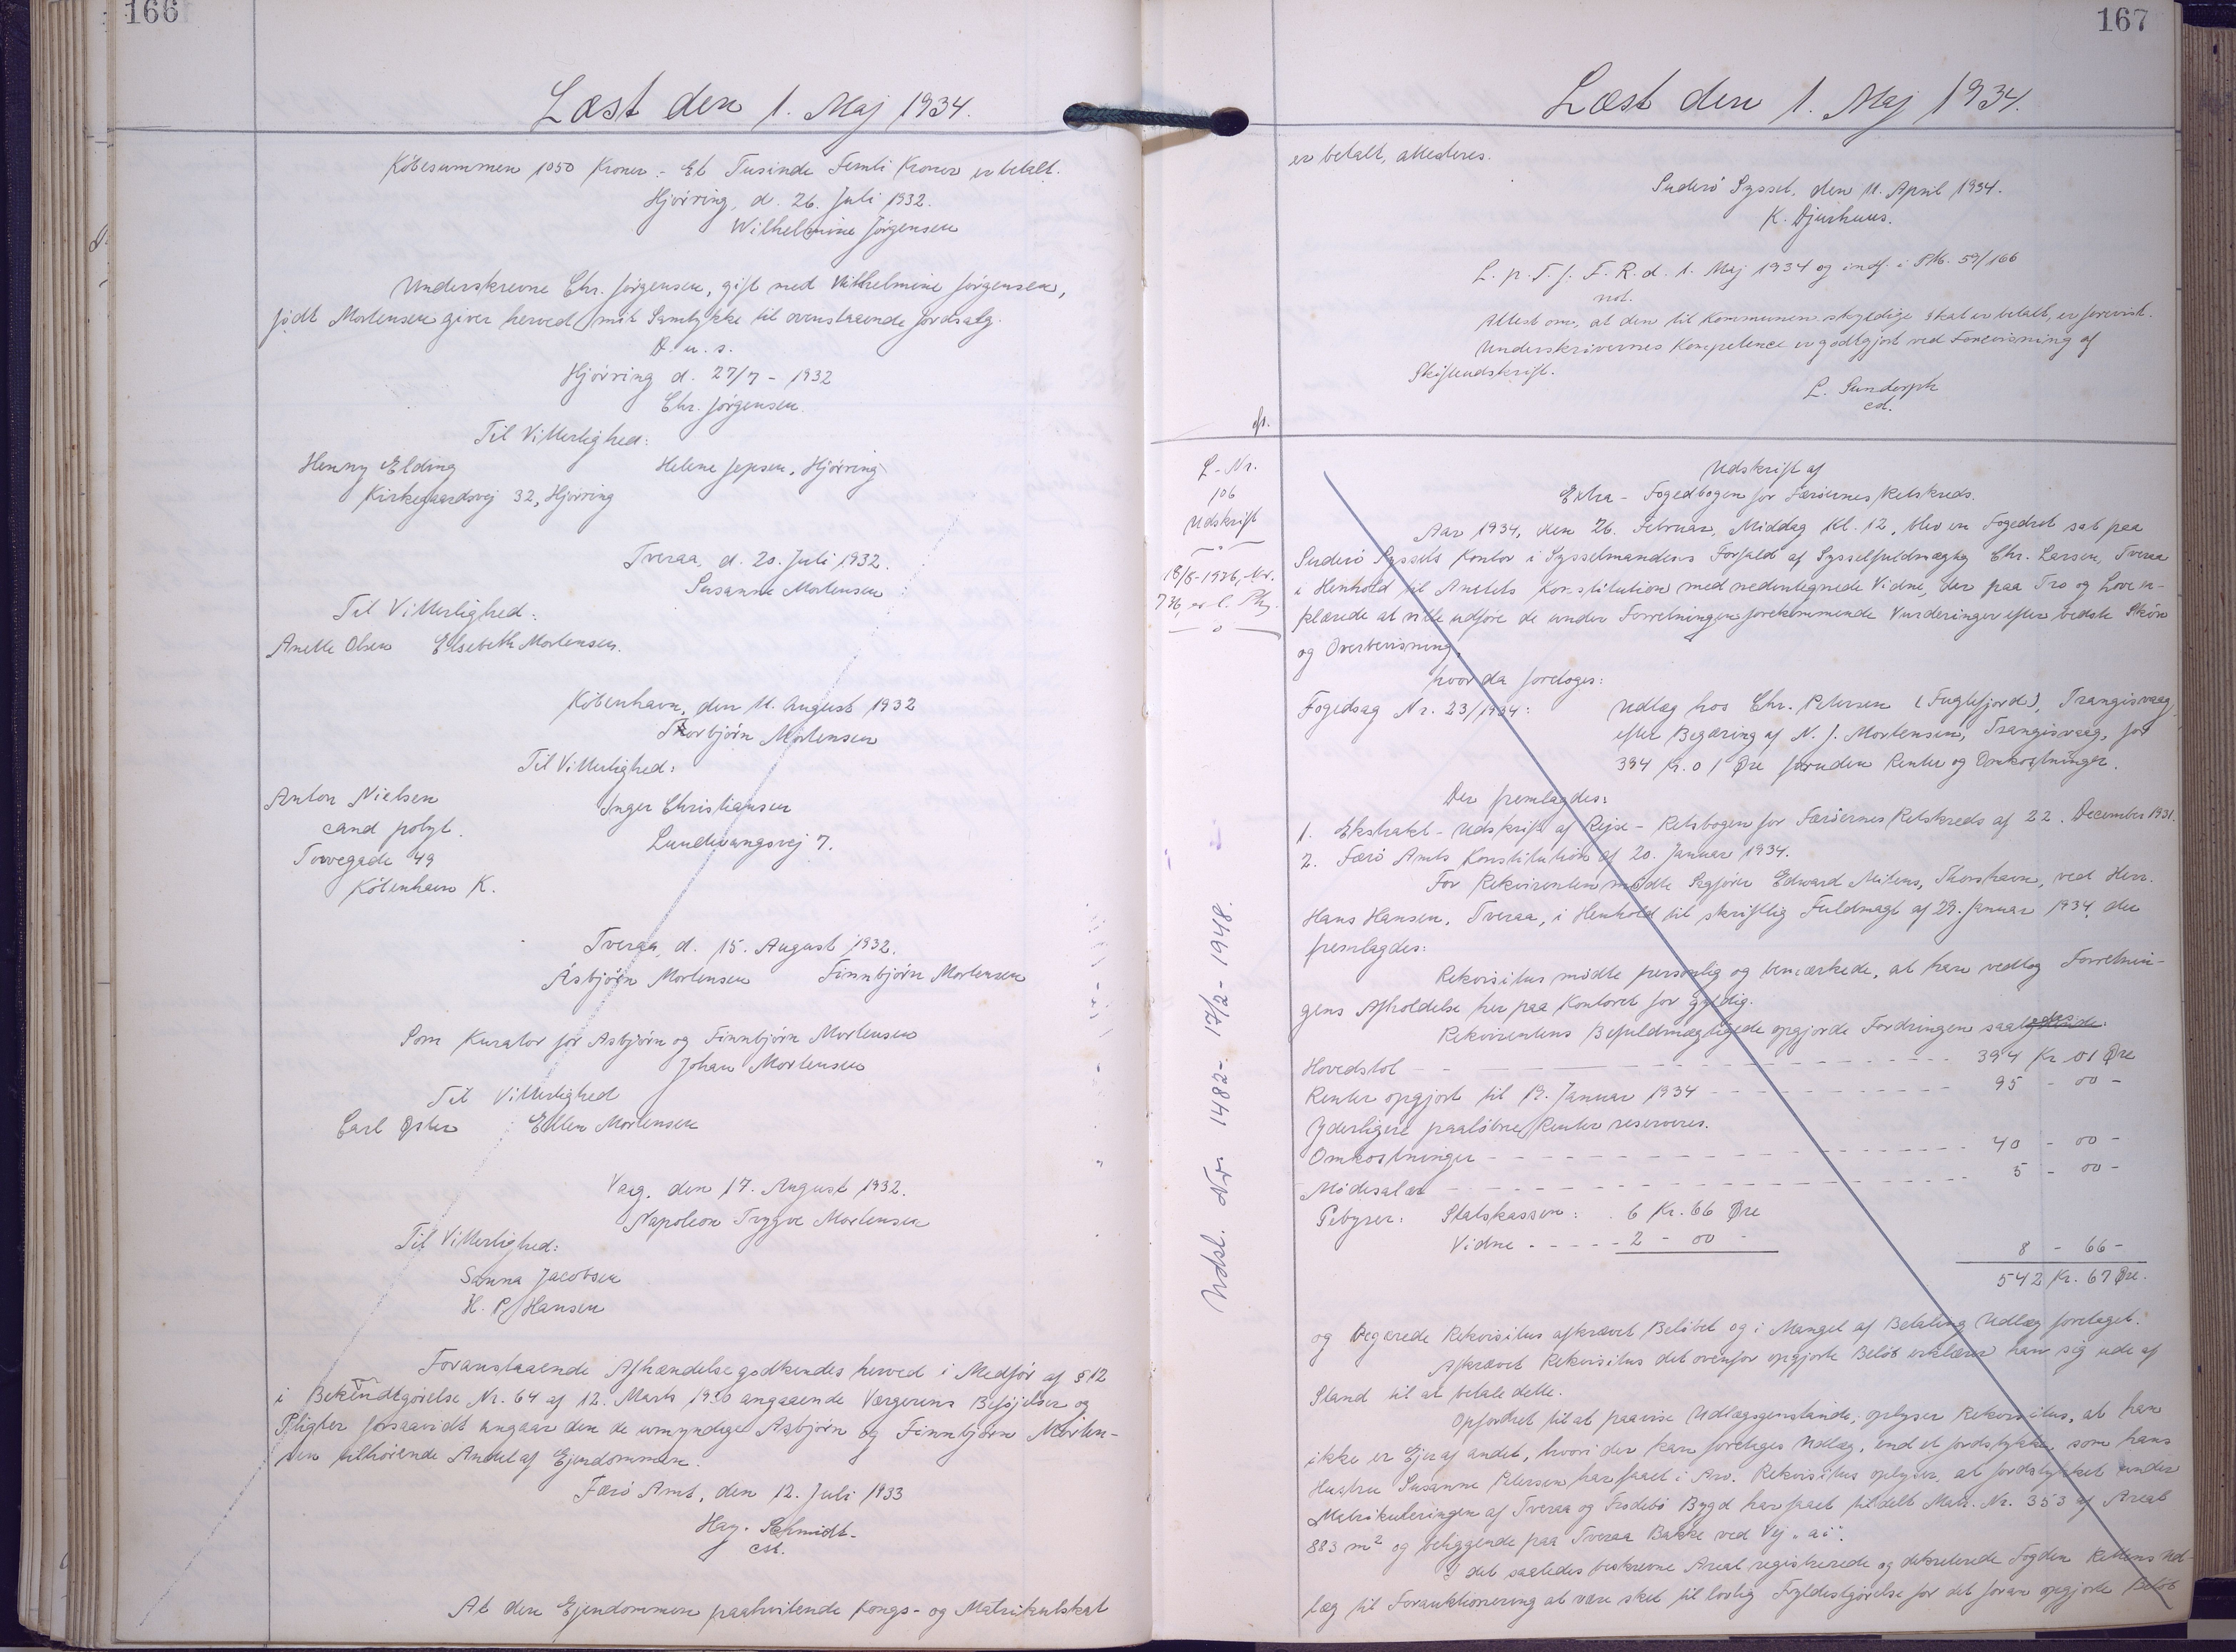 166
Læst den 1. Maj 1934.
Købesummen 1050 Kroner - Et Tusinde Femti Kroner er betalt.
Hjørring, d. 26. Juli 1932.
Wilhelmine Jörgensen
Underskrevne Chr. Jörgensen, gift med Vilhelmine Jörgensen,
født Mortensen giver herved mit Samtykke til ovenstaaende Jordsalg.
D. u. s.
Hjørring d. 27/7 - 1932
Chr. Jörgensen
Til Vitterlighed:
Henny Elding Helene Jepsen, Hjørring
Kirkegaardsvej 32, Hjørring
Tveraa, d. 20. Juli 1932.
Susanna Mortensen
Til Vitterlighed:
Anette Olsen Elsebeth Mortensen.
København, den 11. August 1932
Thorbjörn Mortensen
Til Vitterlighed:
Anton Nielsen Inger Christiansen
cand polyt. Lundevangsvej 7.
Torvegade 49
København K.
Tveraa, d. 15. August 1932.
Asbjörn Mortensen Finnbjörn Mortensen
Som Kurator for Asbjörn og Finnbjörn Mortensen
Johan Mortensen
Til Vitterlighed
Carl Øster Ellen Mortensen
Vaag, den 17. August 1932.
Napoleon Trygve Mortensen
Til Vitterlighed:
Sanna Jacobsen
H. P. Hansen
Foranstaaende Afhændelse godkendes herved i Medfør af § 12
i Bekendtgørelse Nr. 64 af 12. Marts 1930 angaaende Værgerens Beføjelser og
Pligter forsaavidt angaar den de umyndige Asbjörn og Finnbjörn Morten-
sen tilhørende Andel af Ejendommen.
Færø Amt, den 12. Juli 1933
Hag. Schmidt.
cst.
At den Ejendommen paahvilende Kongs- og Matrikulskat
167
Læst den 1. Maj 1934.
er betalt, attesteres.
Suderø Syssel, den 11. April 1934.
K. Djurhuus.
L. p. T. f. F. R. d. 1. Maj 1934 og indf. i 59/166
not.
Attest om, at den til Kommunen skyldige Skat er betalt, er forevist.
Underskrivernes Kompetence er godtgjort ved Forevisning af
Skifteudskrift.
L.
cst.
L-Nr.
106
Udskrift
18/8-1926, Nr.
736,
Udsl. Nr. 1482 - 17/2 - 1948.
Udskrift af
Extra - Fogedbogen for Færøernes Retskreds.
Aar 1934, den 26. Februar, Middag Kl. 12, blev en Fogedret sat paa
Suderø Syssels Kontor i Sysselmandens Forfald af Sysselfuldmægtig Chr. Larsen, Tveraa
i Henhold til Amtets Konstitution med nedentegnede Vidne, der paa Tro og Love er-
klærede at ville udføre de under Forretningen forekommende Vurderinger efter bedste Skøn
og Overbevisning,
hvor da foretoges:
Fogedsag Nr. 23/1934: Udlæg hos Chr. Petersen (Fuglefjord), Trangisvaag
efter Begæring af N. J. Mortensen, Trangisvaag, for
394 Kr. 01 Øre foruden Renter og Omkostninger.
Der fremlagdes:
1. Ekstrakt - Udskrift af Rejse - Retsbogen for Færøernes Retskreds af 22. December 1931.
2. Færø Amts Konstitution af 20. Januar 1934.
For Rekvirenten mødte Sagfører Edward Mitens, Thorshavn, ved Herr.
Hans Hansen, Tveraa, i Henhold til skriftlig Fuldmagt af 29. Januar 1934, der
fremlagdes:
Rekvisitus mødte personlig og bemærkede, at han vedtog Forretnin-
gens Afholdelse her paa Kontoret for gyldig.
Rekvirentens Befuldmægtigede opgjorde Fordringen saaledes:
Hovedstol 394 Kr 01 Øre
Renter opgjort til 13. Januar 1934 95 - 00 -
Yderligere paaløbne Renter reserveres.
Omkostninger 40 - 00 -
Mødesalær 5 - 00 -
Gebyrer: Statskassen: 6 Kr. 66 Øre
Vidne - - - - - 2 - 00 -
8 - 66 -
542 Kr. 67 Øre.
og begærede Rekvisitus afkrævet Beløbet og i Mangel af Betaling Udlæg foretaget.
Afkrævet Rekvisitus det ovenfor opgjorte Beløb erklærer han sig ude af
Stand til at betale dette.
Opfordret til at paavise Udlægsgenstande, oplyser Rekvisitus, at han
ikke er Ejer af andet, hvori der kan foretages Udlæg, end et Jordstykke, som hans
Hustru Susanne Petersen har faaet i Arv. Rekvisitus oplyser, at Jordstykket under
Matrikuleringen af Tveraa og Frodebø Bygd har faaet tildelt Matr. Nr. 353 af Areal
883 m² og beliggende paa Tveraa Bakke ved Vej "ai".
I det saaledes beskrevne Areal registrerede og dekreterede Fogden Rettens Ud-
læg til Forauktionering at være sket til lovlig Fyldestgørelse for det foran opgjorte Beløb